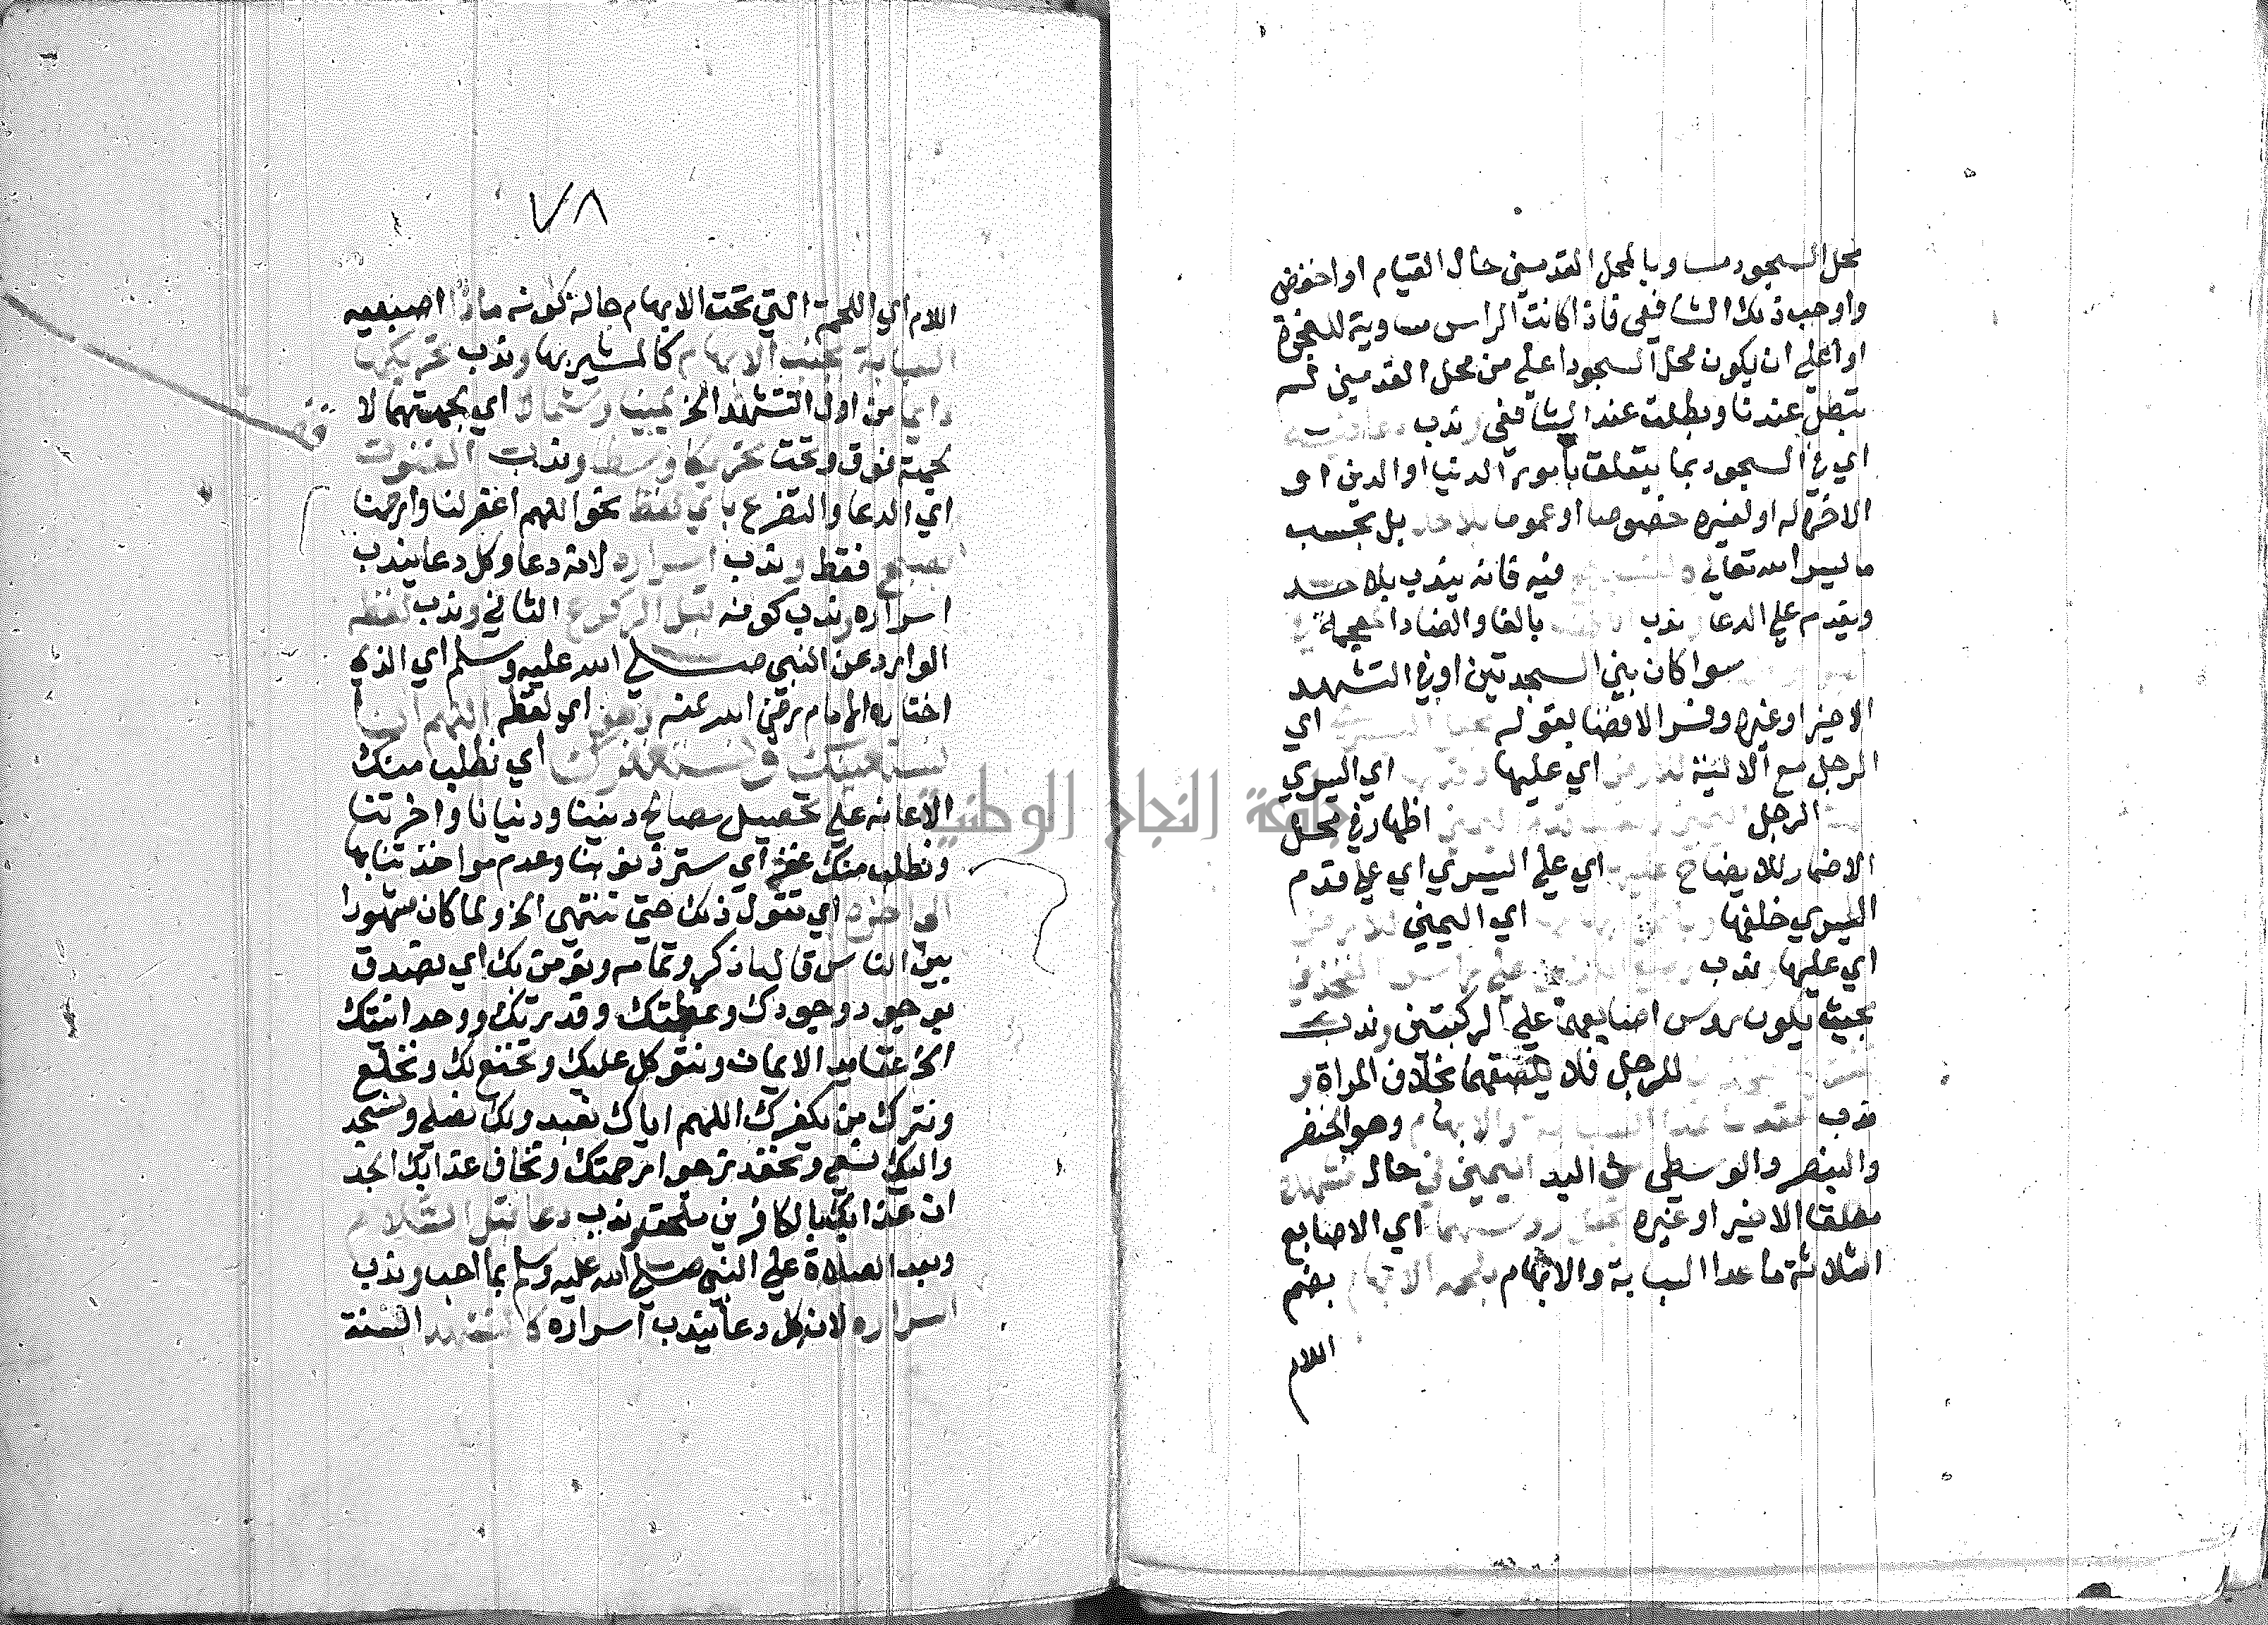 محل السجود مساويا لمحل القدمين حال القيام او اخفض
واوجب ذلك الشافعي فاذا كانت الراس مساوية للعجزة
او اعلي ان يكون محل السجود اعلي من محل القدمين لم
تبطل عندنا وبطلت عند الشافعي وندب دعا فيه
اي في السجود بما يتعلق بامور الدنيا او الدين او
الاخرة له او لغيره خصوصا او عموما بلا حد بل بحسب
ما يسر الله تعالي فيه فانه يندب بلا حد
ويقدم علي الدعا وندب بالفا والضاد المعجمة
سوا كان بين السجدتين او في التشهد
الاخير او غيره وفسر الافضا بقوله اي
الرجل مع الالية للارض اي عليها اي اليسري
الرجل اليمني اظهار في محل
الاضمار للايضاح عليها اي علي اليسري اي علي قدم
اليسري خلفها اي اليمني للارض
اي عليها وندب علي راس الفخذين
بحيث يكون روس اصابعهما علي الركبتين وندب
للرجل فلا يلصقهما بخلاف المراة و
ندب عقد ما عدا السبابة والابهام وهو الخنصر
والبنصر والوسطي من اليد اليمني في حال تشهده
مطلقا الاخير او غيره اي الاصابع
الثلاثة ما عدا السبابة والابهام بلحمة الابهام بضم
اللام
٧٨
اللام اي اللحمة التي تحت الابهام حالة كونه مادا اصبعيه
السبابة بجنب الابهام كالمشير بها وندب تحريكها
دايما من اول التشهد الخ يمينا وشمالا اي بجهتهما لا
لجهة فوق وتحت تحريكا وسطا وندب القنوت
اي الدعا والتضرع باي لفظ نحو اللهم اغفر لنا وارحمنا
بصبح فقط وندب اسراره لانه دعا وكل دعا يندب
اسراره وندب كونه قبل الركوع الثاني وندب لفظه
الوارد عن النبي صلي الله عليه وسلم اي الذي
اختاره الامام رضي الله عنه وهو اي لفظه اللهم انا
نستعينك ونستغفرك اي نطلب منك
الاعانة علي تحصيل مصالح ديننا ودنيانا واخرتنا
ونطلب منك غفر اي ستر ذنوبنا وعدم مواخذتنا بها
الي اخره اي تقول ذلك حتي تنتهي الخ ولما كان مشهورا
بين الناس قال ما ذكر وتمامه ونومن بك اي نصدق
بوجود وجودك وعظمتك وقدرتك ووحدانيتك
الخ عقايد الايمان ونتوكل عليك ونخنع لك ونخلع
ونترك من يكفرك اللهم اياك نعبد ولك نصلي ونسجد
واليك نسعي ونحفد نرجوا رحمتك ونخاف عذابك الجد
ان عذابك بالكافرين ملحق وندب دعا قبل السلام
وبعد الصلاة علي النبي صلي الله عليه وسلم بما احب وندب
اسراره لان كل دعا يندب اسراره كالتشهد السنة
جامعة النجاح الوطنية